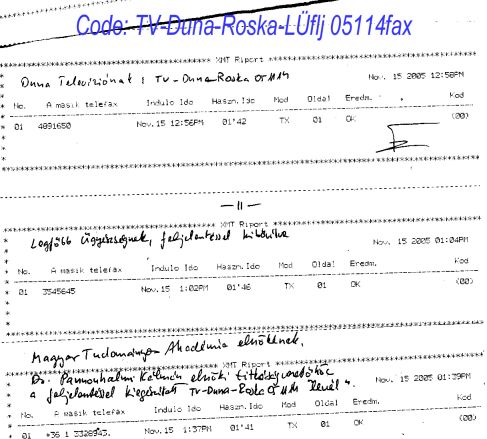 Code: TV-Duna-Roska-LÜflj 05114fax
XMT Riport
Duna Televíziónak : TV-Duna-Roska
Nov. 15 2005 12:58PM
No. A masik telefax Indulo Ido Haszn.Ido Mod Oldal Eredm. Kod
01 4891650 Nov.15 12:56PM 01'42 TX 01 OK (00)
— 11 —
XMT Riport
Legfőbb Ügyészségnek, feljelentéssel
Nov. 15 2005 01:04PM
No. A masik telefax Indulo Ido Haszn.Ido Mod Oldal Eredm. Kod
01 3545645 Nov.15 1:02PM 01'46 TX 01 OK (00)
Magyar Tudományos Akadémia elnökének,
XMT Riport
Dr. Pannonhalmi Kálmán elnöki
a feljelentéssel kiegészített TV-Duna-Roska
Nov. 15 2005 01:39PM
No. A masik telefax Indulo Ido Haszn.Ido Mod Oldal Eredm. Kod
01 +36 1 3328943. Nov.15 1:37PM 01'41 TX 01 OK (00)